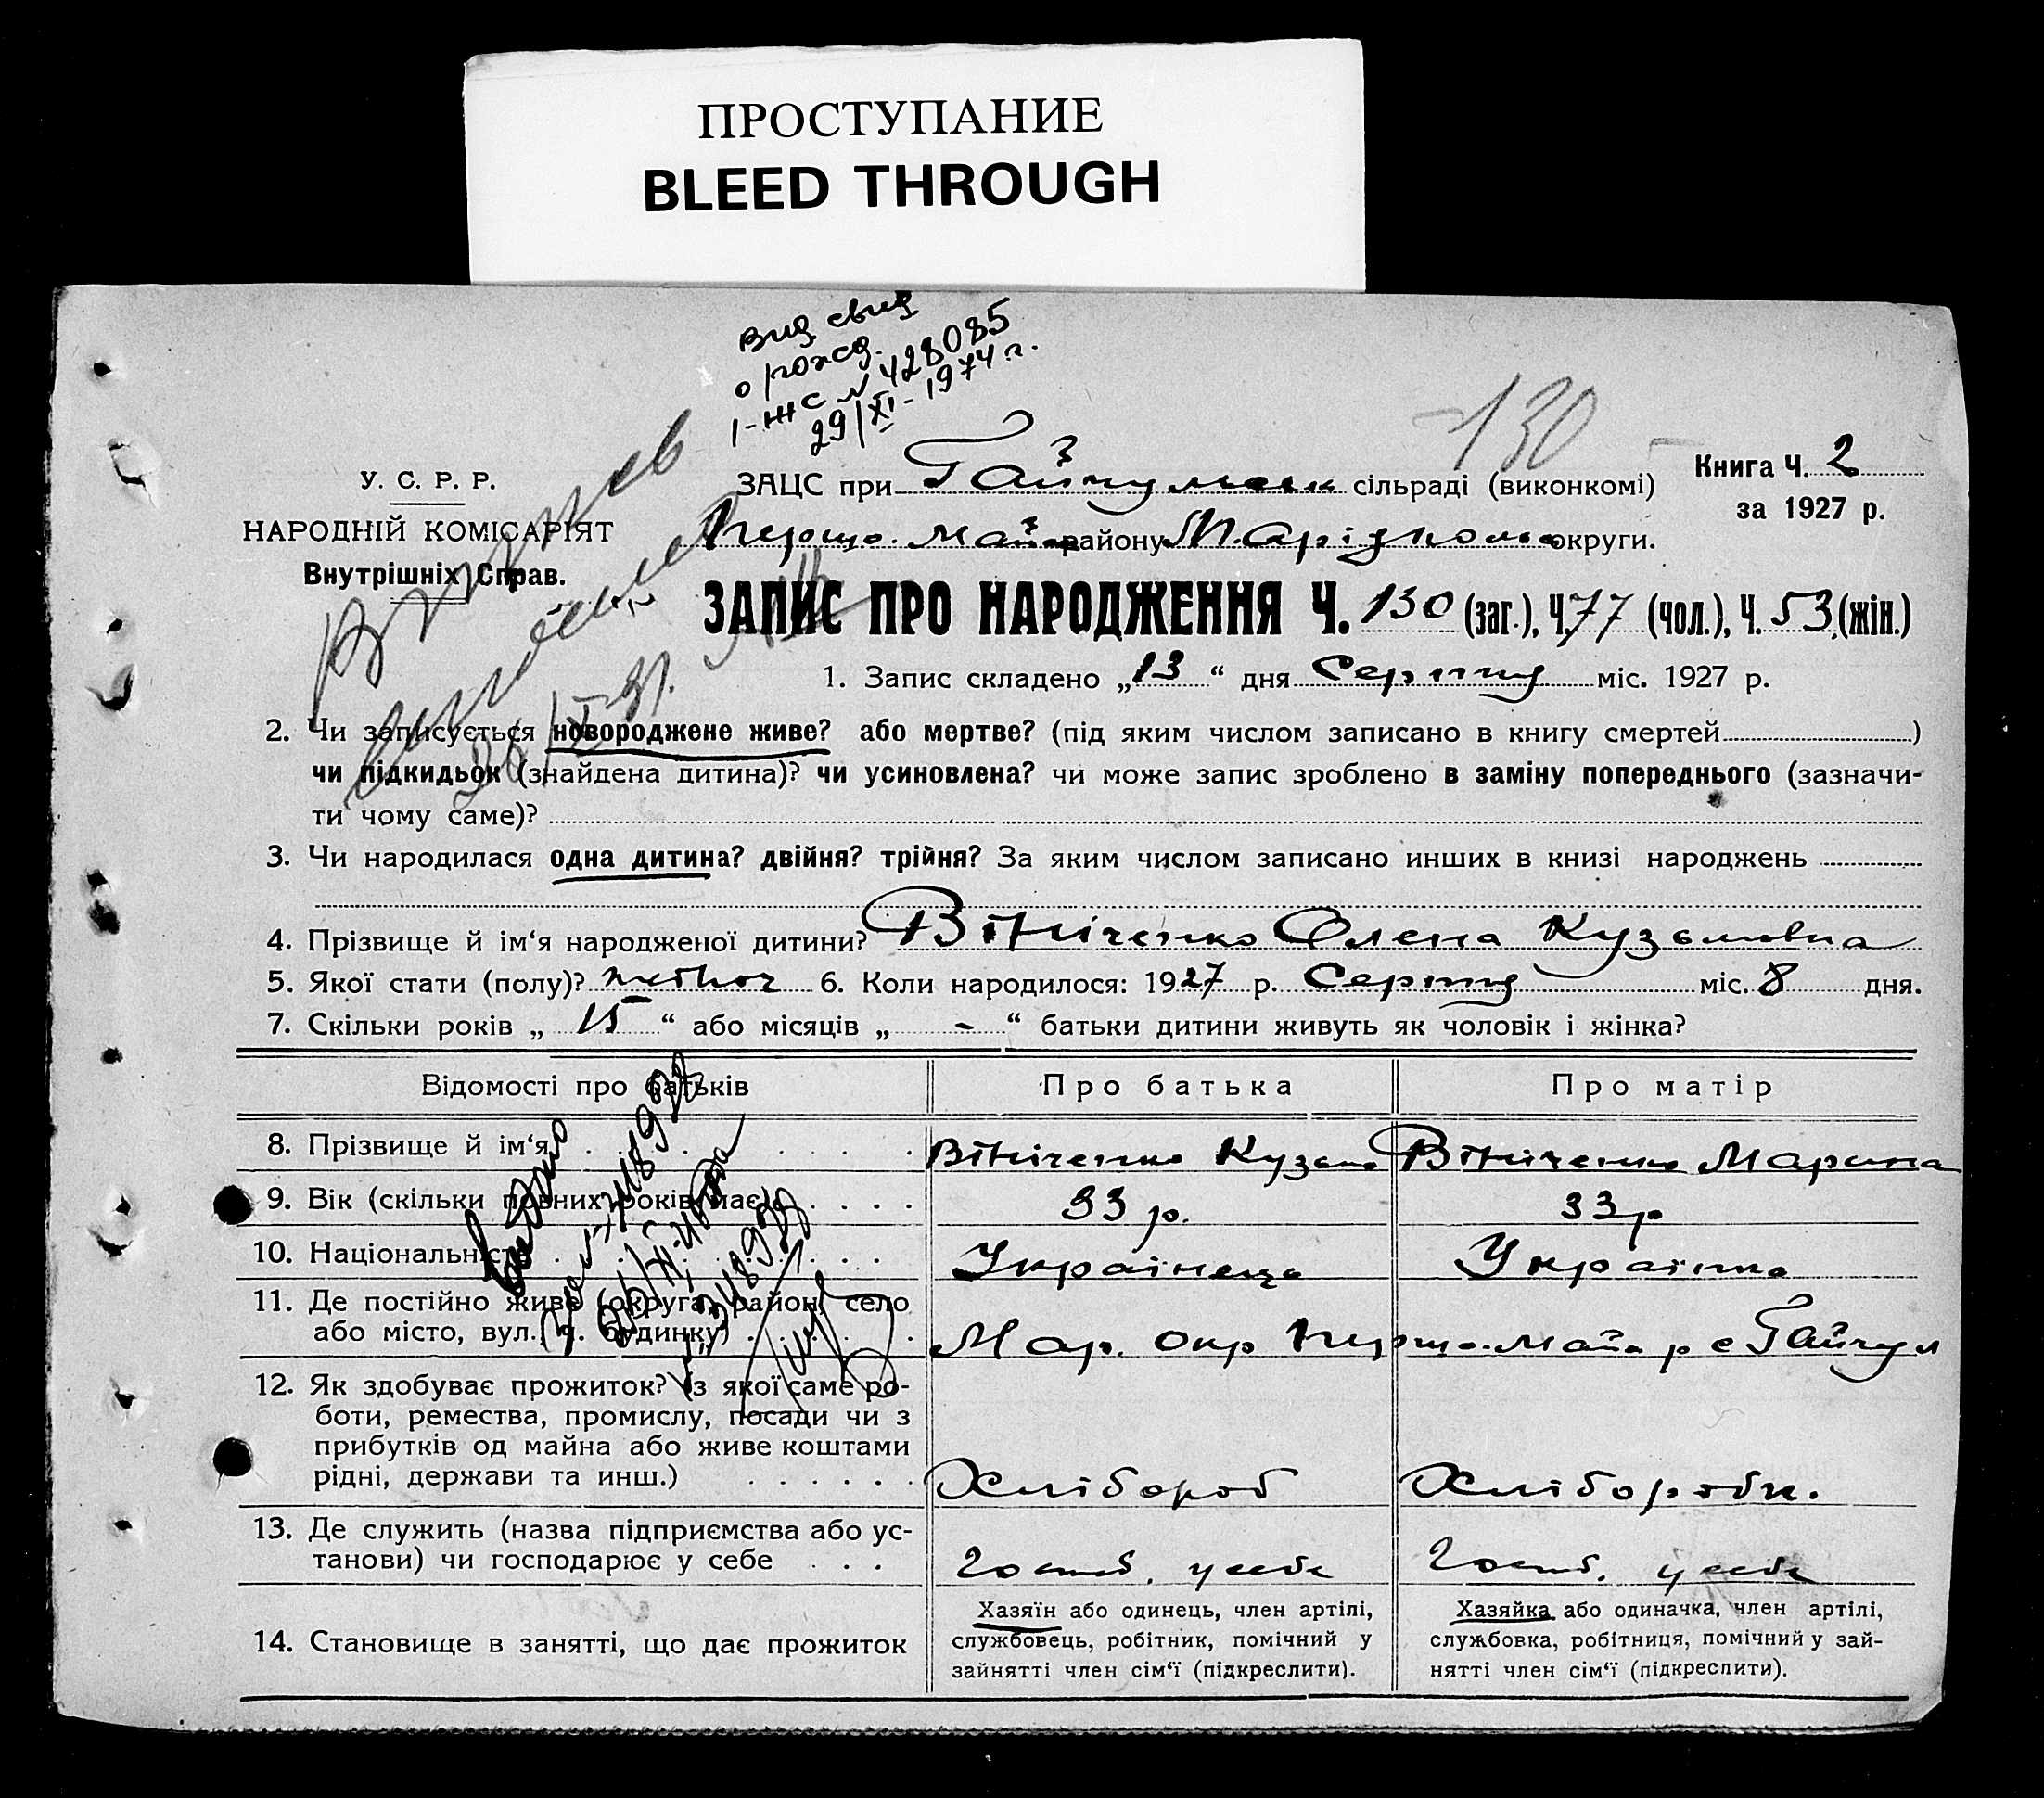 ПРОСТУПАНИЕ
BLEED THROUGH
вид свид
о рожд.
I-ЖС № 428085
29/XI-1974 г.
130
Книга Ч. 2
за 1927 р.
У. С. Р. Р.
НАРОДНІЙ КОМІСАРІЯТ
Внутрішніх Справ.
ЗАЦС при Гайчульськ сільраді (виконкомі)
Першо-Май району Маріупол округи.
ЗАПИС ПРО НАРОДЖЕННЯ Ч. 130 (заг.), Ч. 77 (чол.), Ч. 53 (жін.)
1. Запис складено „13“ дня Серпня міс. 1927 р.
2. Чи записується новороджене живе? або мертве? (під яким числом записано в книгу смертей)
чи підкидьок (знайдена дитина)? чи усиновлена? чи може запис зроблено в заміну попереднього (зазначи-
ти чому саме)?
3. Чи народилася одна дитина? двійня? трійня? За яким числом записано инших в книзі народжень
4. Прізвище й ім‘я народженої дитини? Вініченко Олена Кузьмовна
5. Якої стати (полу)? жіноч 6. Коли народилося: 1927 р. Серпня міс. 8 дня.
7. Скільки років „15“ або місяців „-“ батьки дитини живуть як чоловік і жінка?
Відомості про батьків Про батька Про матір
8. Прізвище й ім‘я Вініченко Кузьма Вініченко Марина
9. Вік (скільки повних років має) 33 р. 33 р
10. Національність Українець Українка
11. Де постійно живе (округа, район, село
або місто, вул., ч. будинку) Мар. окр Першо-Май р с Гайчул
12. Як здобуває прожиток? (з якої саме ро-
боти, ремества, промислу, посади чи з
прибутків од майна або живе коштами
рідні, держави та инш.) Хлібороб Хліборобк.
13. Де служить (назва підприємства або ус-
танови) чи господарює у себе Госпб. у себе Госпб. у себе
14. Становище в занятті, що дає прожиток
Хазяїн або одинець, член артілі,
службовець, робітник, помічний у
зайнятті член сім‘ї (підкреслити).
Хазяйка або одиначка, член артілі,
службовка, робітниця, помічний у зай-
нятті член сім‘ї (підкреслити).